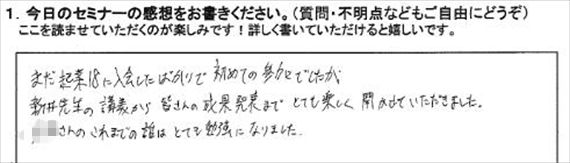 1. 今日のセミナーの感想をお書きください。（質問・不明点などもご自由にどうぞ）
ここを読ませていただくのが楽しみです！詳しく書いていただけると嬉しいです。
まだ起業18に入会したばかりで初めての参加でしたが、
新井先生の講義から皆さんの成果発表までとても楽しく聞かせていただきました。
さんのこれまでの話はとても勉強になりました。